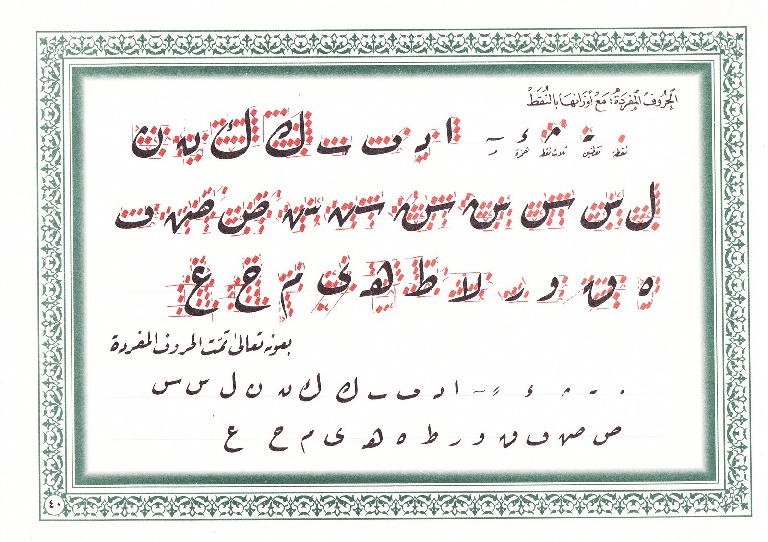 الحروف المفردة: مع أوزانها بالنقط
نقطة نقطتين ثلاث نقط همزة
ا د ف ت ك ك ن ن
ل س س س س س ص ص ف
ه ق و ر لا ط ه ى م ح ع
بعونه تعالى تمت الحروف المفردة
ء ا د ف ت ك ك ن ن ل س س
ص ص ف ق و ر ط ه ه ى م ح ع
٤٠